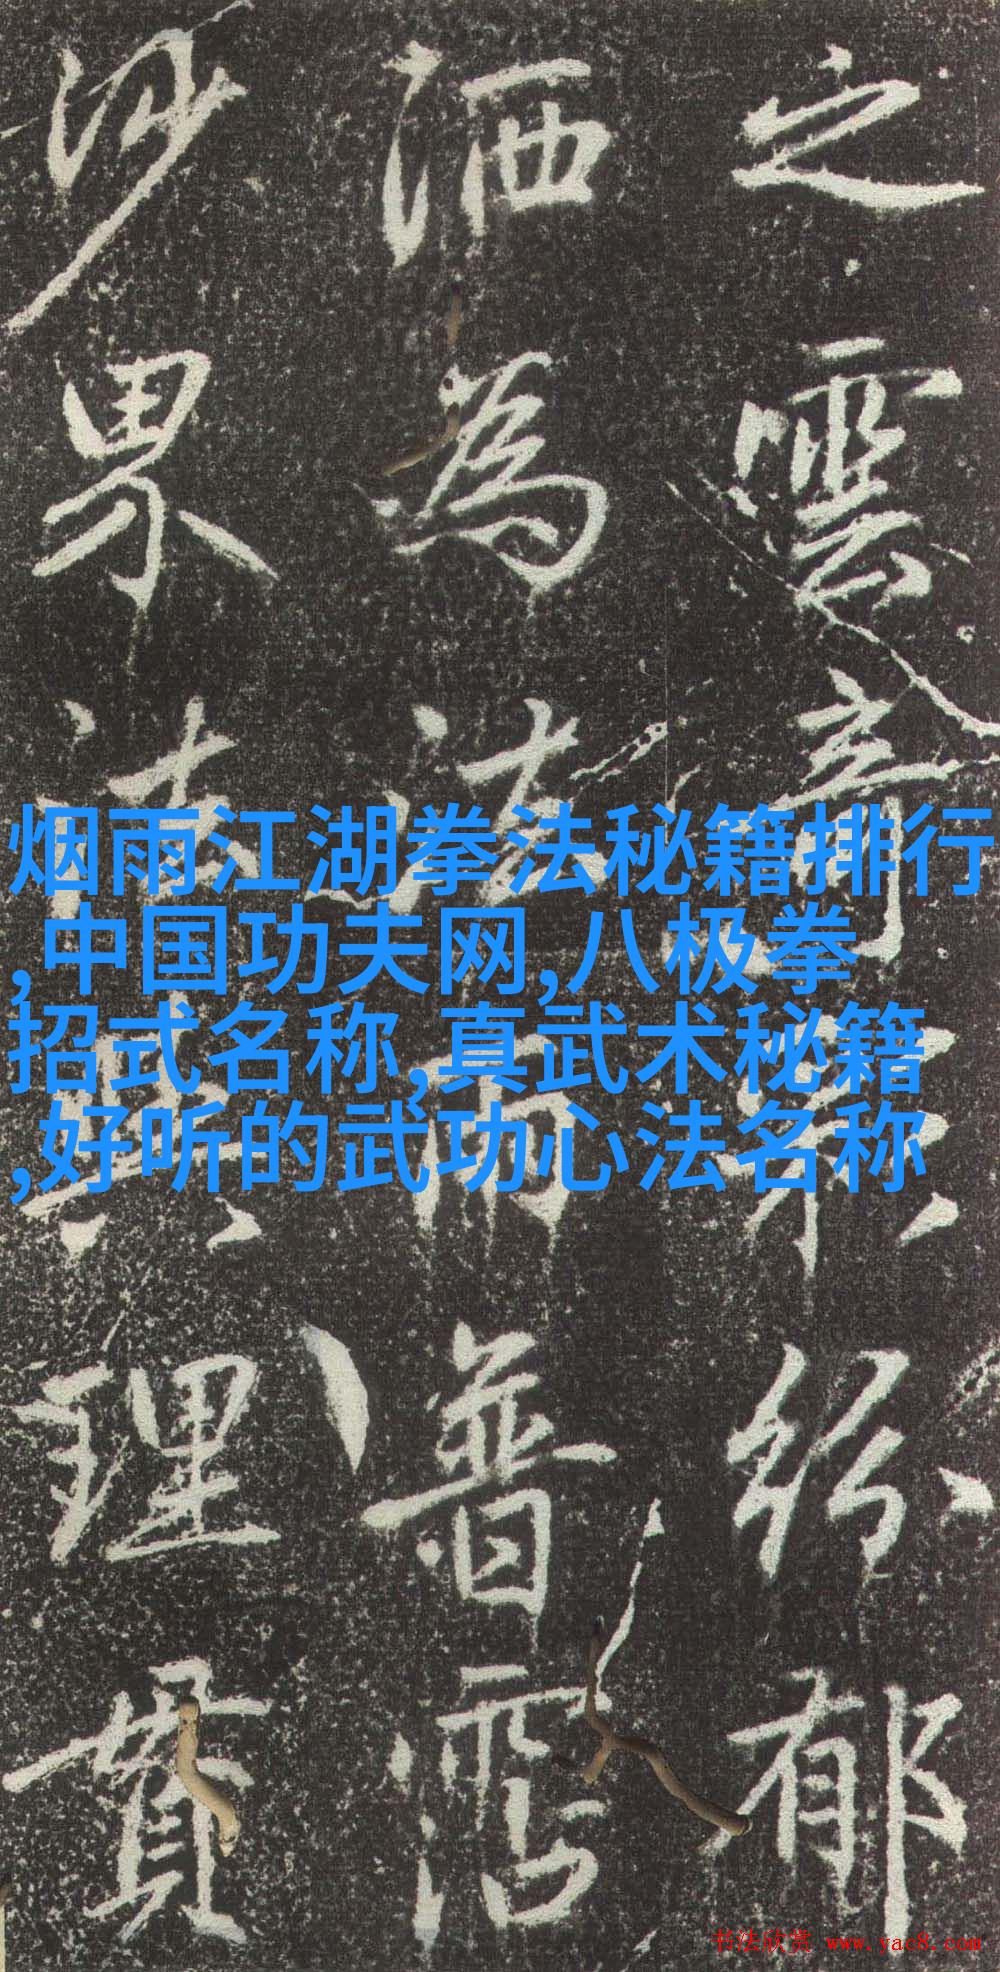 之雲奇紛郁
洒為法雨普霑
沙界法理貫
烟雨江湖拳法秘籍排行
,中国功夫网,八极拳
招式名称,真武术秘籍
,好听的武功心法名称
书法欣赏 www.yac8.com